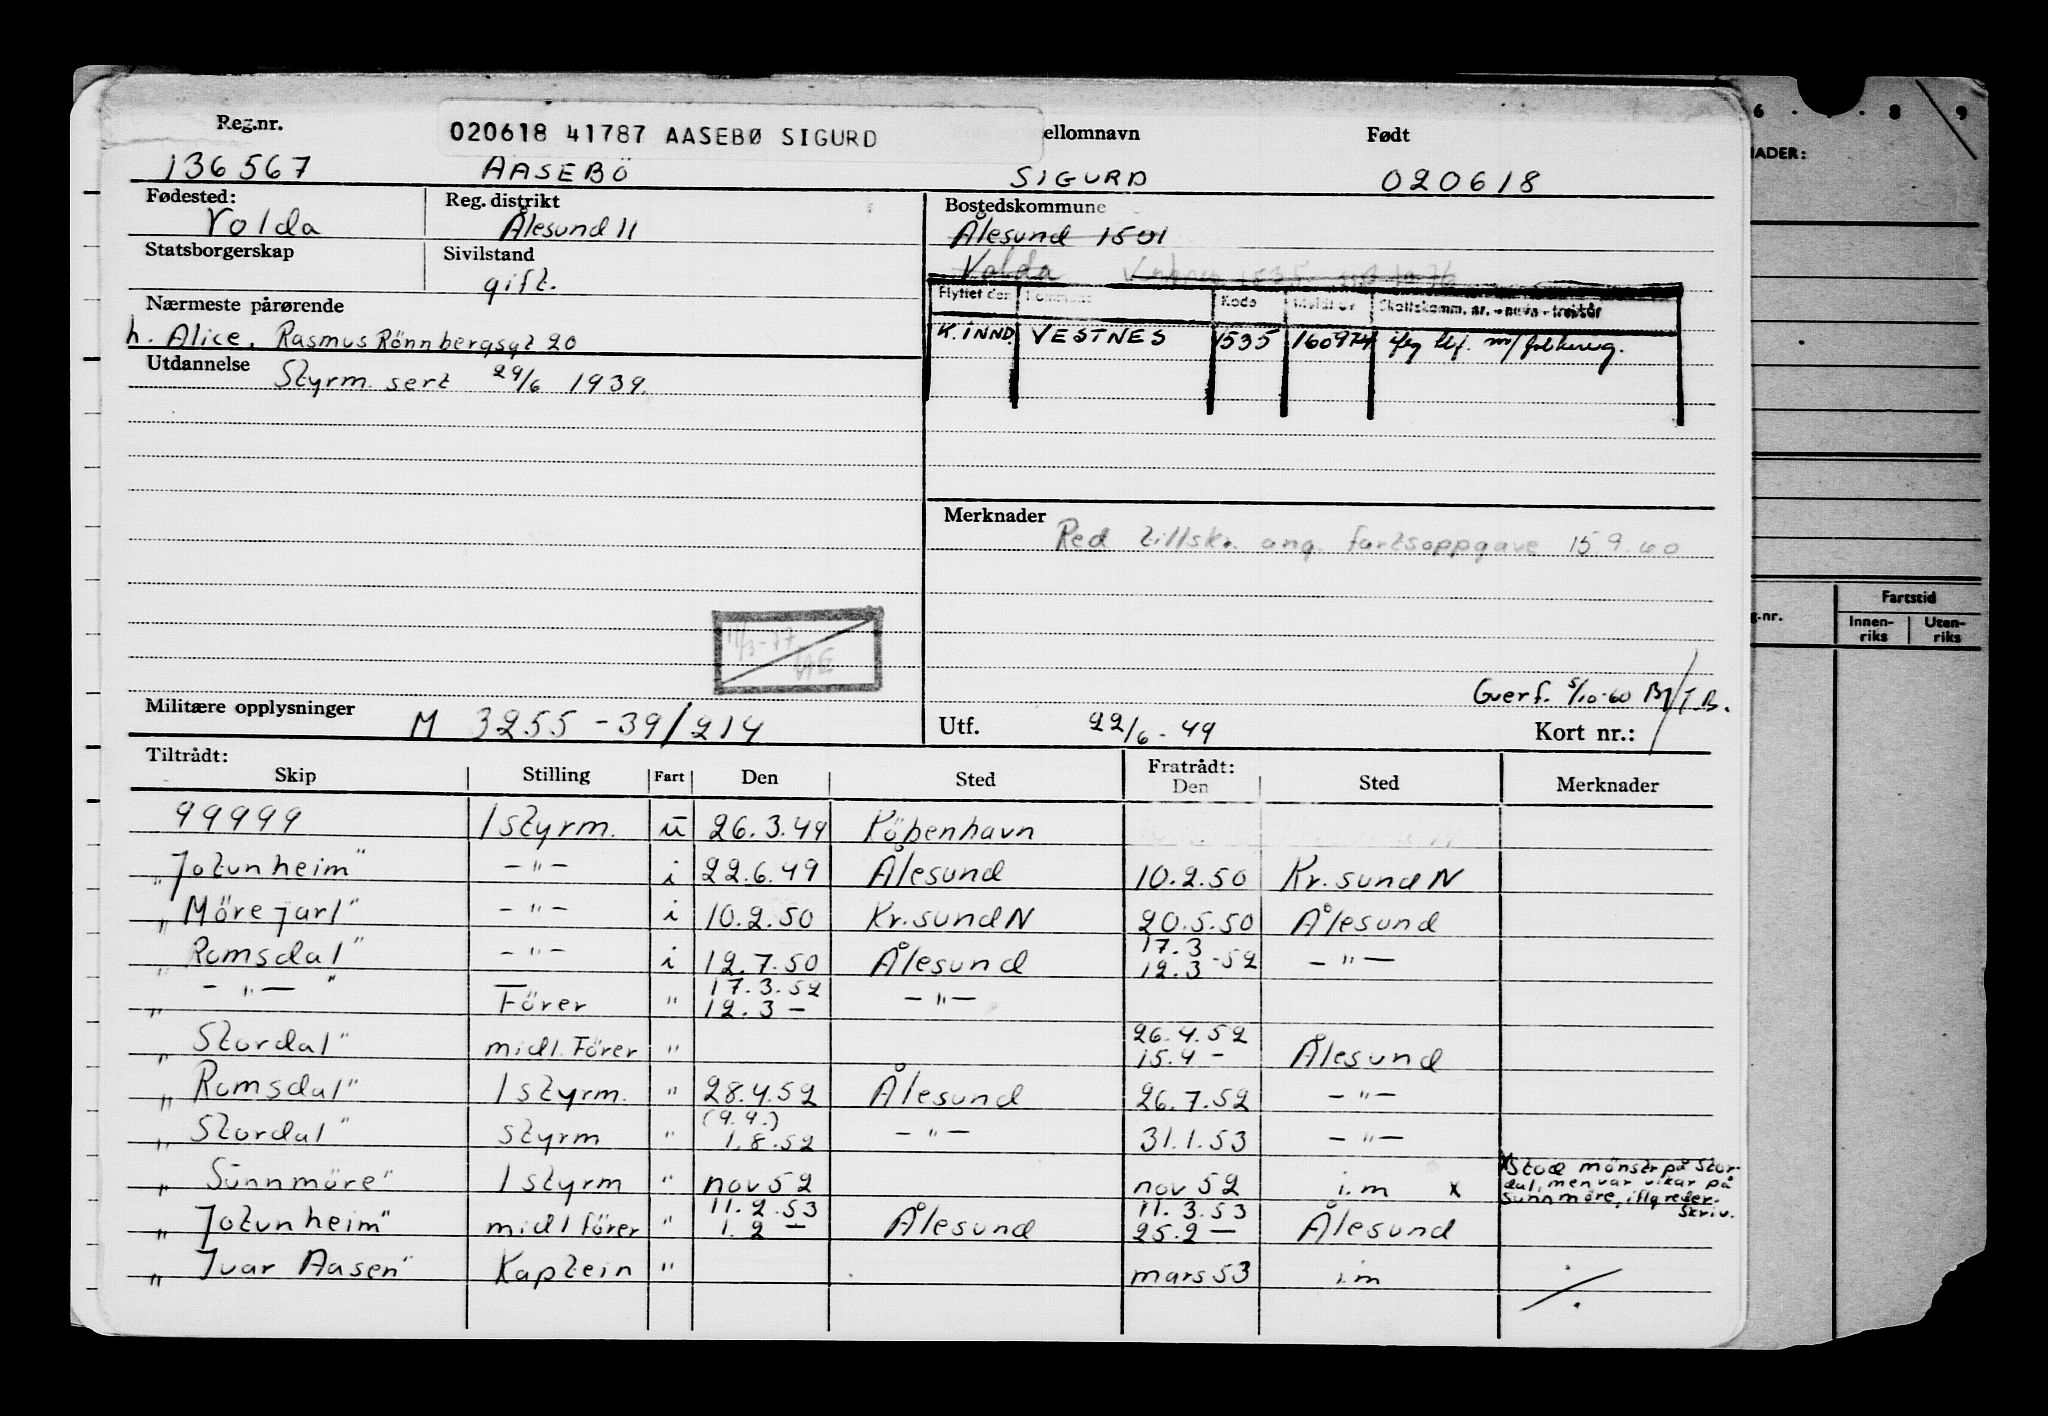 Reg.nr. 020618 41787 AASEBØ SIGURD ellomnavn Født
136567 AASEBÖ SIGURD 020618
Fødested: Reg. distrikt Bostedskommune
Volda Ålesund II Ålesund 1501
Statsborgerskap Sivilstand Volda
gift.
Flyttet den Kommune Kode Meldt av Skattskomm. nr. - navn - trekkår
Nærmeste pårørende
h. Alice, Rasmus Rönnbergsgt 20 K. INND. VESTNES 1535 160974 ifg tlf. m/folkereg.
Utdannelse Styrm. sert 29/6 1939.
Merknader
Red tillskr. ang. fartsoppgave 15.9.60
Overf. 5/10-60
Militære opplysninger M 3255-39/214 Utf. 22/6-49 Kort nr.:
Tiltrådt: Fratrådt:
Skip Stilling Fart Den Sted Den Sted Merknader
99999 1 styrm. u 26.3.49 Köbenhavn
"Jotunheim" -"- i 22.6.49 Ålesund 10.2.50 Kr.sund N
"Möre jarl" -"- i 10.2.50 Kr.sund N 20.5.50 Ålesund
"Romsdal" -"- i 12.7.50 Ålesund 17.3 12.3 -52 -"-
" -"- " Förer " 17.3.52 12.3 - -"-
"Stordal" midl. Förer " 26.4.52 15.4 - Ålesund
"Romsdal" 1 styrm. " 28.4.52 Ålesund 26.7.52 -"-
"Stordal" styrm " (9.9.) 1.8.52 -"- 31.1.53 -"-
"Sunnmöre" 1 styrm " nov 52 nov 52 i.m x
x Stod mönstr på Stor-
dal, men var vikar på
Sunnmöre, iflg reder.
skriv.
"Jotunheim" midl förer " 11.2.53 1.2 - Ålesund 11.3.53 25.2 - Ålesund
"Ivar Aasen" Kaptein " mars 53 i.m
6 . . 8 9
NADER:
g.nr. Fartstid
Innen-
riks Uten-
riks